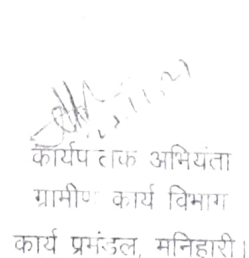 कार्यपालक अभियंता
ग्रामीण कार्य विभाग
कार्य प्रमंडल, मनिहारी।